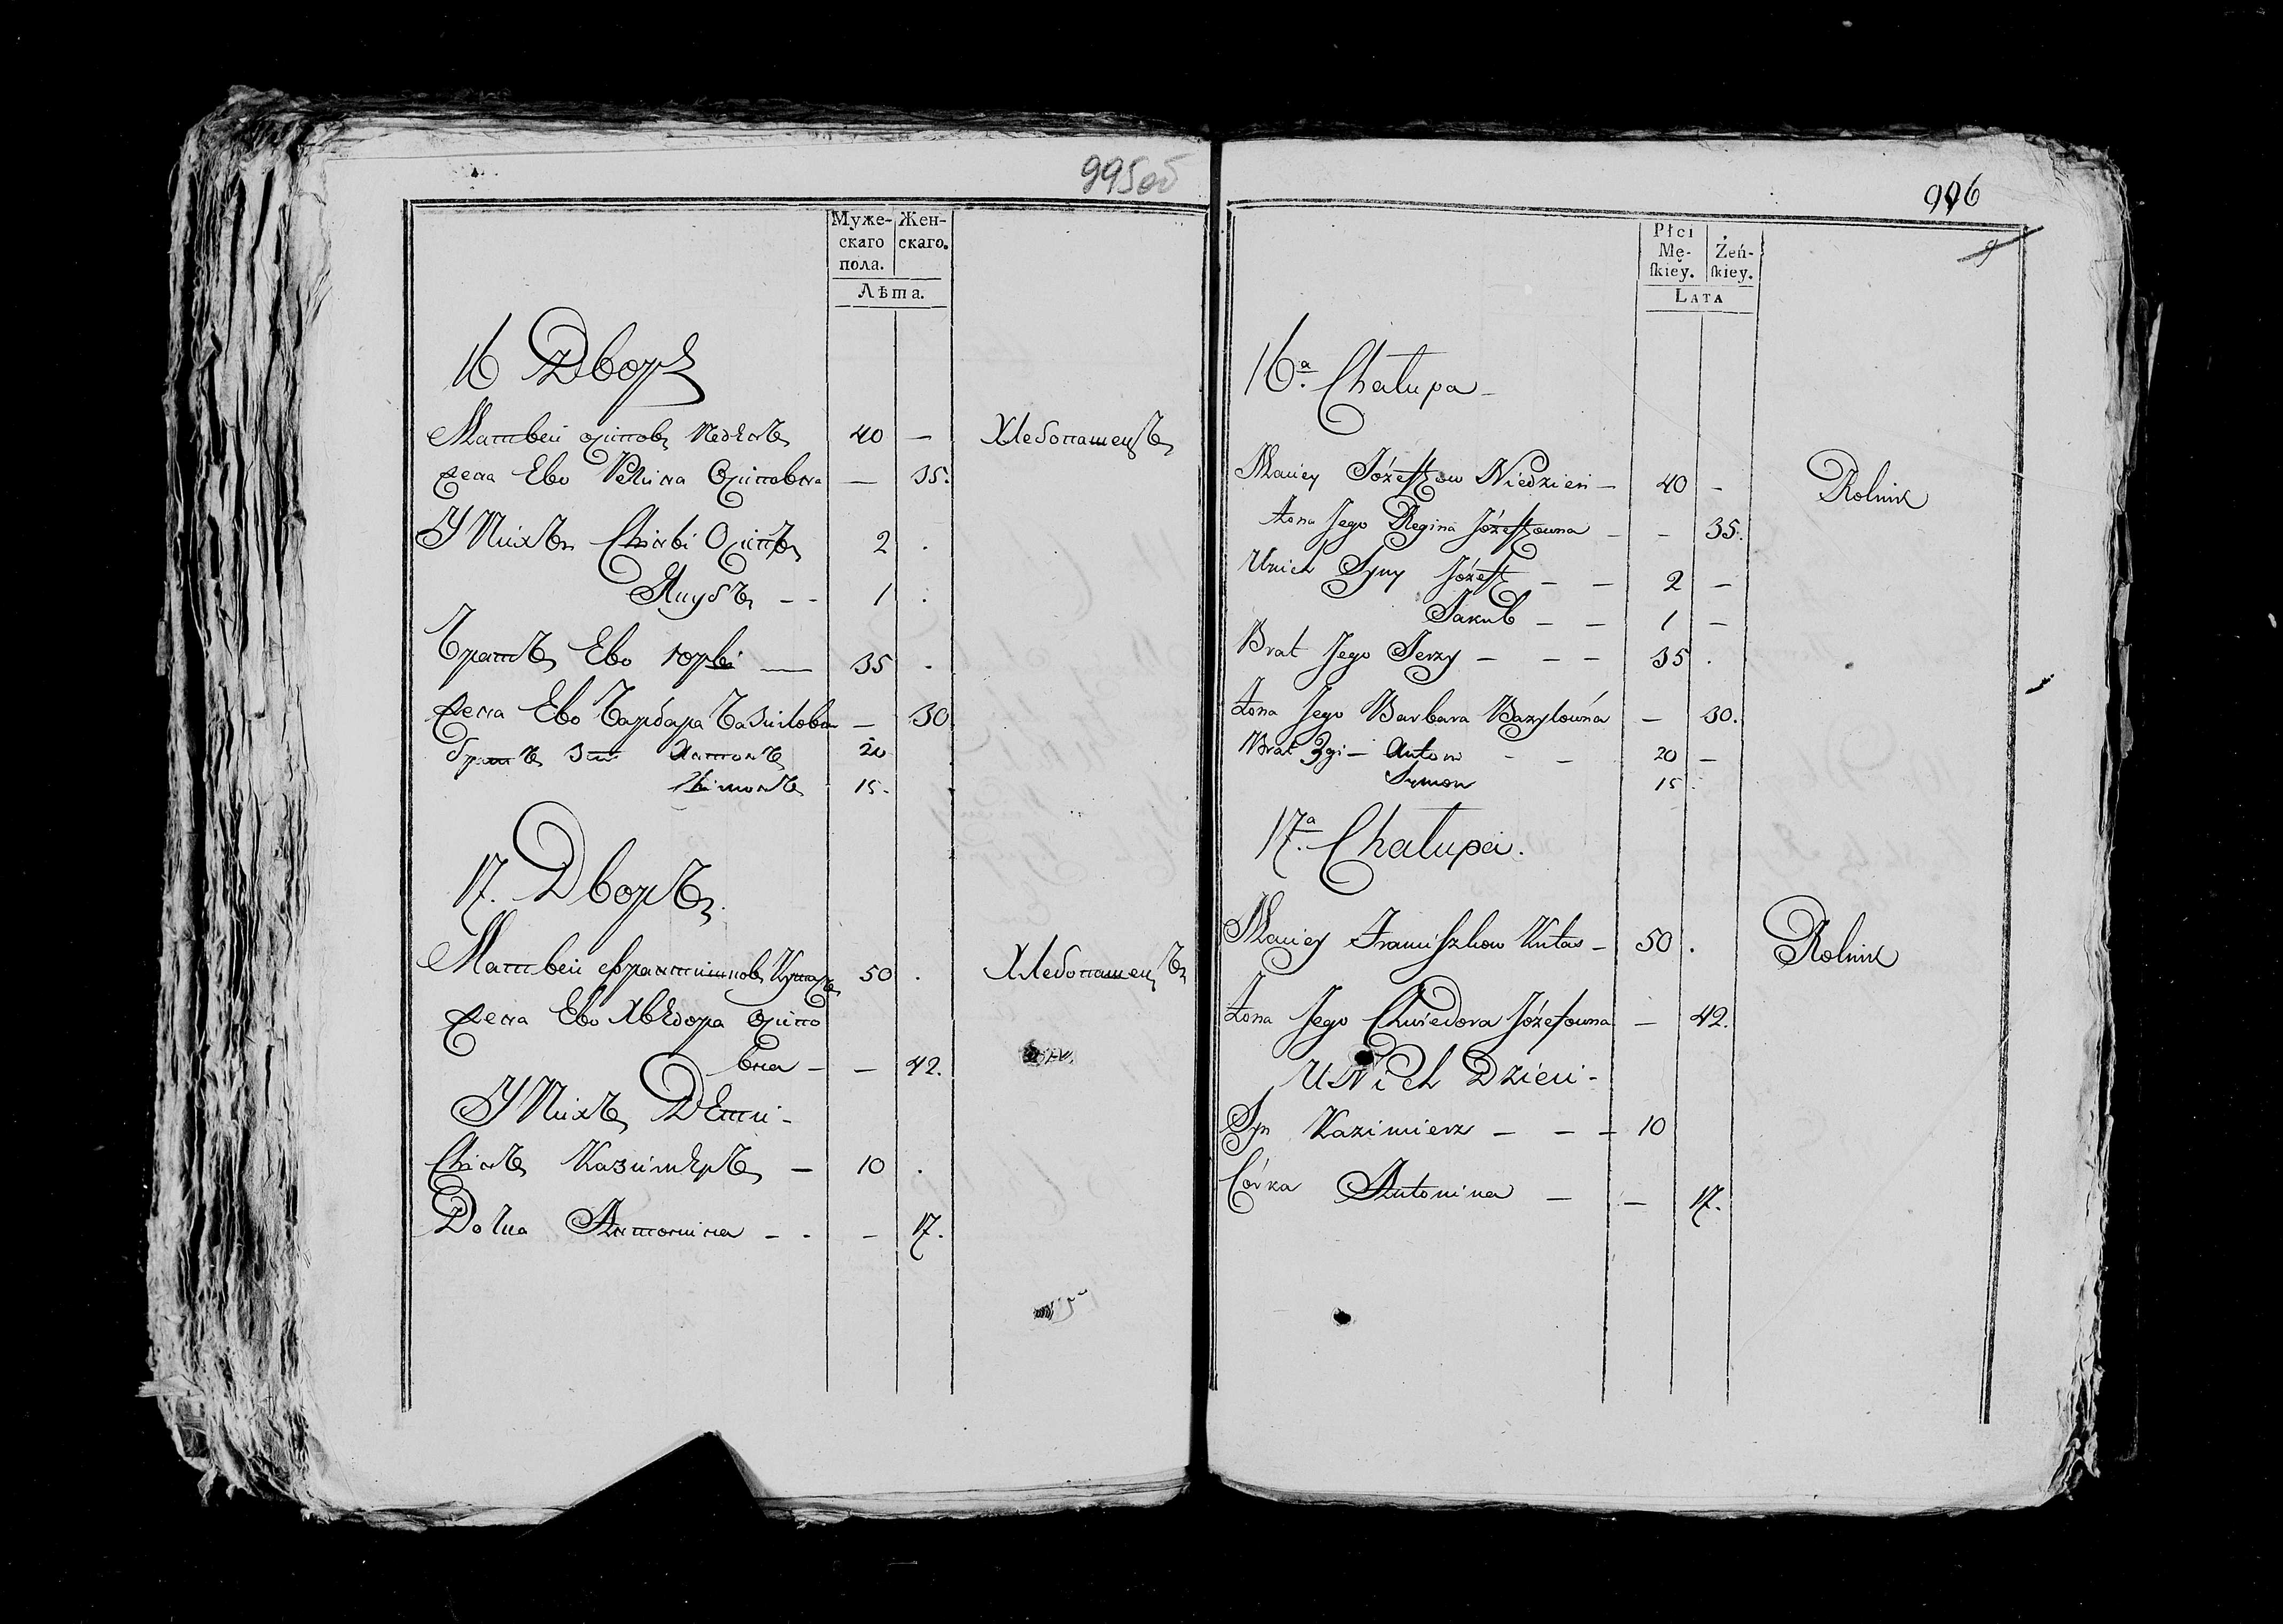 995об
Муже- Жен-
скаго скаго.
пола.
Лѣта.
16 Дворъ
Матвей осиповъ 40 — Хлебопашецъ
жена Ево Регина Осиповна — 35.
У Нихъ Сыны Осипъ 2 .
Якубъ - - 1 .
Братъ Ево Юрьи — 35 .
жена Ево Барбара Базилова — 30
братъ Антонъ 20
Шимонъ 15.
17. Дворъ.
Матвей Франтишковъ Кутасъ 50 . Хлебопашецъ
жена Ево Хвѣдора Осипо
вна — — 42.
У Нихъ Дѣти -
Сынъ Казимѣръ — 10 .
Дочка Антонина - - - 17.
996
9
Płci
Mę- Żeń-
ſkiey. ſkiey.
LATA
16.a Chałupa -
Maciey Józefow Niedzień — 40 - Rolnik
Żona Jego Regina Józefowna - - 35.
Unich Syny Józef — — 2 —
Jakub — — 1 —
Brat Jego Jerzy — — — 35 .
Żona Jego Barbara Bazylowna — 30.
Brat 3gi — Anton - - 20 —
Symon 15 .
17.a Chałupa.
Maciey Franciszkow Kutas — 50 . Rolnik
Żona Jego Chwiedora Józefowna — 42.
U Nich Dzieci -
Syn Kazimierz — — — 10
Córka Antonina — — 17.